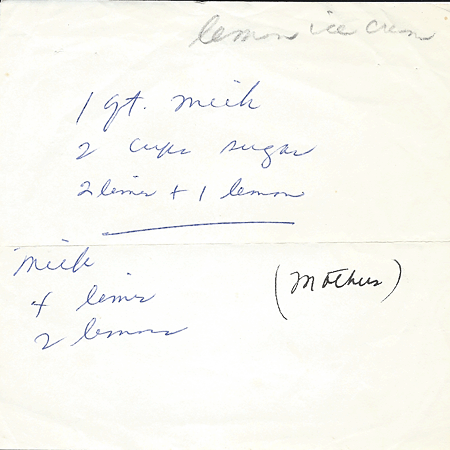 lemon ice cream
1 qt. milk
2 cups sugar
2 limes + 1 lemon
milk
4 limes
2 lemons
(Mothers)